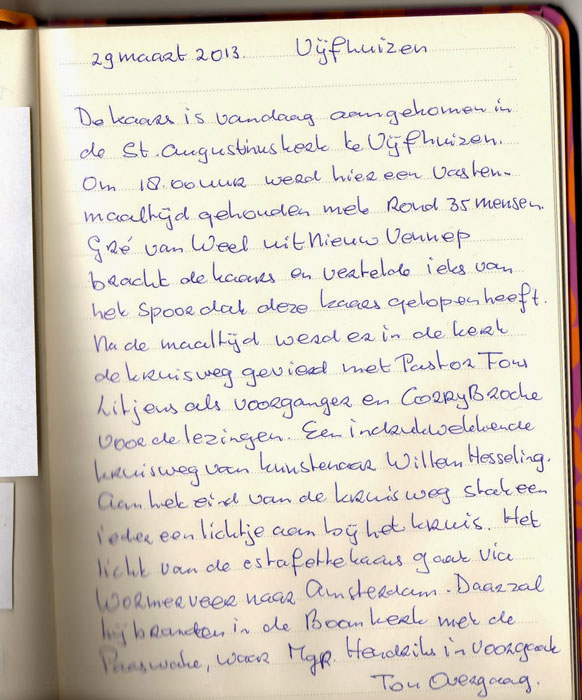 29 maart 2013. Vijfhuizen
De kaars is vandaag aangekomen in
de St. Augustinuskerk te Vijfhuizen.
Om 18.00 uur werd hier een vasten-
maaltijd gehouden met Rond 35 mensen.
Gré van Weel uit Nieuw Vennep
bracht de kaars en vertelde iets van
het spoor dat deze kaars gelopen heeft.
Na de maaltijd werd er in de kerk
de kruisweg gevierd met Pastor Fons
Litjens als voorganger en Corry Broche
voor de lezingen. Een indrukwekkende
kruisweg van kunstenaar Willem Hesseling.
Aan het eind van de kruisweg stak een
ieder een lichtje aan bij het kruis. Het
licht van de estafettekaars gaat via
Wormerveer naar Amsterdam. Daar zal
hij branden in de Boomkerk met de
Paaswake, waar Mgr. Hendriks in voorgaat
Ton Overgaag.